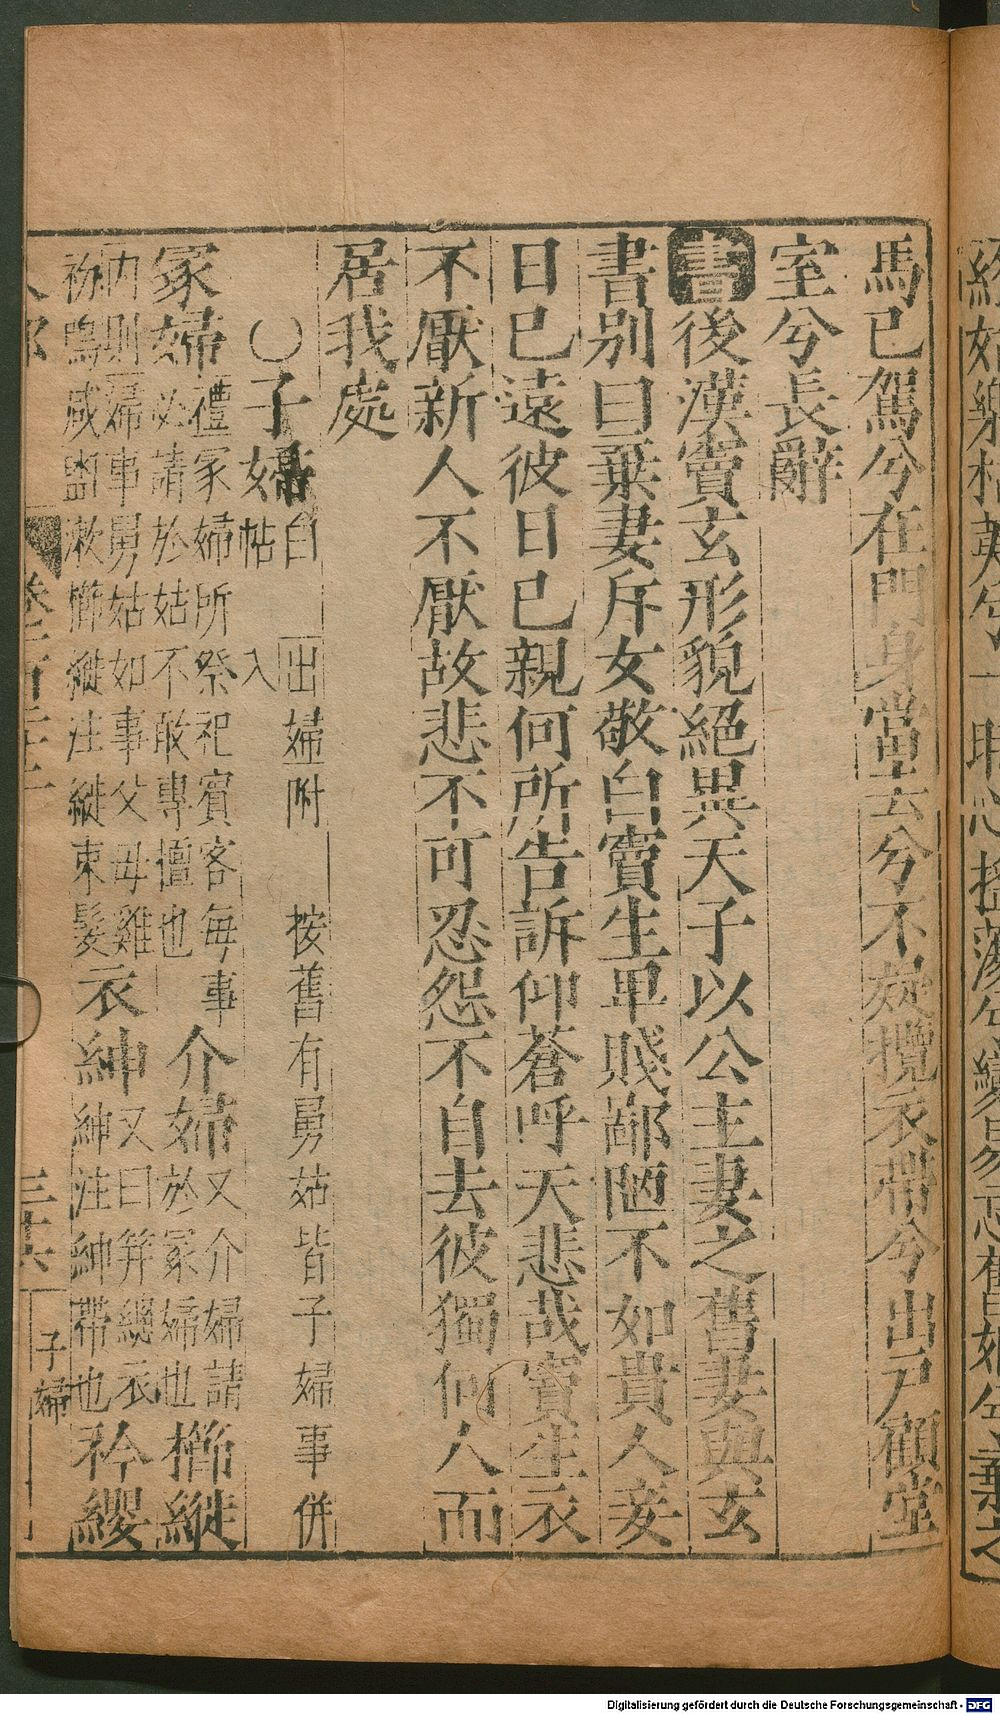 馬已駕兮在門身當去兮不疑攬衣帶兮出戶顧堂
室兮長辭
書後漢竇玄形貌絕異天子以公主妻之舊妻與玄
書別曰棄妻斥女敬白竇生卑賤鄙陋不如貴人妾
日已遠彼日已親何所告訴仰蒼呼天悲哉竇生衣
不厭新人不厭故悲不可忍怨不自去彼獨何人而
居我處
〇子婦自 出婦附 按舊有舅姑皆子婦事併
帖 入
冢婦禮冢婦所祭祀賓客每事
必請於姑不敢專擅也介婦又介婦請
於冢婦也櫛縰
內則婦事舅姑如事父母雞
初鳴咸盥漱櫛縰注縰束髮衣紳又曰笄總衣
紳注紳帶也衿纓
子婦
Digitalisierung gefördert durch die Deutsche Forschungsgemeinschaft - DFG